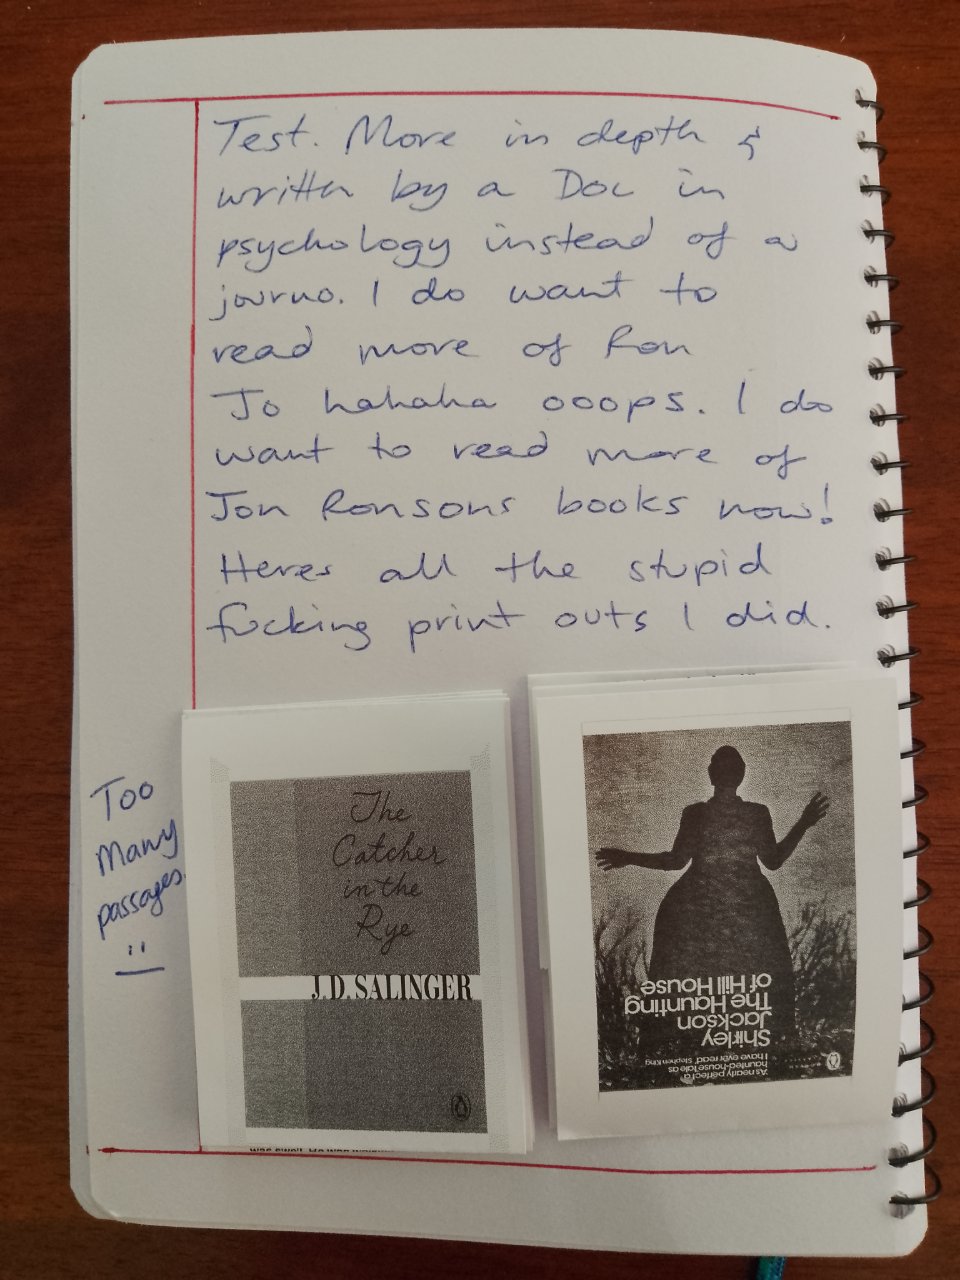 Test. More in depth &
written by a Doc in
psychology instead of a
journo. I do want to
read more of Ron
Jo hahaha ooops. I do
want to read more of
Jon Ronsons books now!
Heres all the stupid
fucking print outs I did.
Too
Many
passages.
The
Catcher
in the
Rye
J.D. SALINGER
'As nearly perfect a
haunted-house tale as
I have ever read' Stephen King
Shirley
Jackson
The Haunting
of Hill House